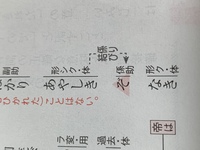 副助
形シク・体
係助
形ク・体
かり
あやしき
ぞ
なき
ことはない。
帝は
ラ変・用
過去・体